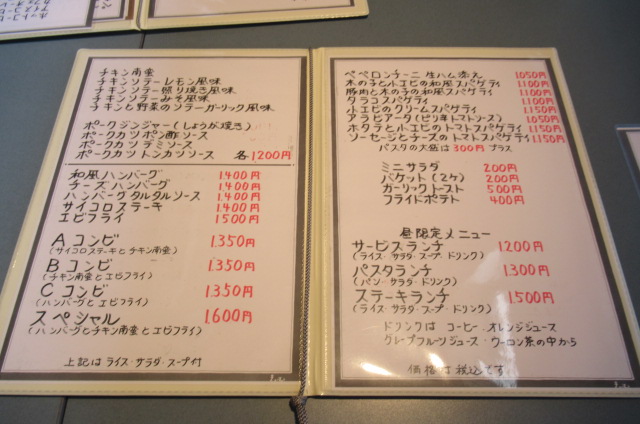 チキン南蛮
チキンソテーレモン風味
チキンソテー照り焼き風味
チキンソテーみそ風味
チキンと野菜のソテーガーリック風味
ポークジンジャー(しょうが焼き)
ポークカツ ポン酢ソース
ポークカツ デミソース
ポークカツ トンカツソース 各1200円
和風ハンバーグ 1.400円
チーズハンバーグ 1.400円
ハンバーグタルタルソース 1.400円
サイコロステーキ 1.400円
エビフライ 1500円
Aコンビ 1.350円
(サイコロステーキとチキン南蛮)
Bコンビ 1.350円
(チキン南蛮とエビフライ)
Cコンビ 1.350円
(ハンバーグとエビフライ)
スペシャル 1.600円
(ハンバーグとチキン南蛮とエビフライ)
上記は ライス・サラダ・スープ付
ペペロンチーニ 生ハム添え 1050円
木の子と小エビの和風スパゲティ 1.100円
豚肉と木の子の和風スパゲティ 1.100円
タラコスパゲティ 1.100円
小エビのクリームスパゲティ 1.150円
アラビアータ(ピリ辛トマトソース) 1.050円
ホタテと小エビのトマトスパゲティ 1.150円
ソーセージとチーズのトマトスパゲティ 1.150円
パスタの大盛は 300円 プラス
ミニサラダ 200円
バケット(2ヶ) 200円
ガーリックトースト 500円
フライドポテト 400円
昼限定メニュー
サービスランチ 1.200円
(ライス・サラダ・スープ・ドリンク)
パスタランチ 1.300円
(パン・サラダ・ドリンク)
ステーキランチ 1.500円
(ライス・サラダ・スープ・ドリンク)
ドリンクは コーヒー・オレンジジュース
グレープフルーツジュース・ウーロン茶の中から
価格は税込です